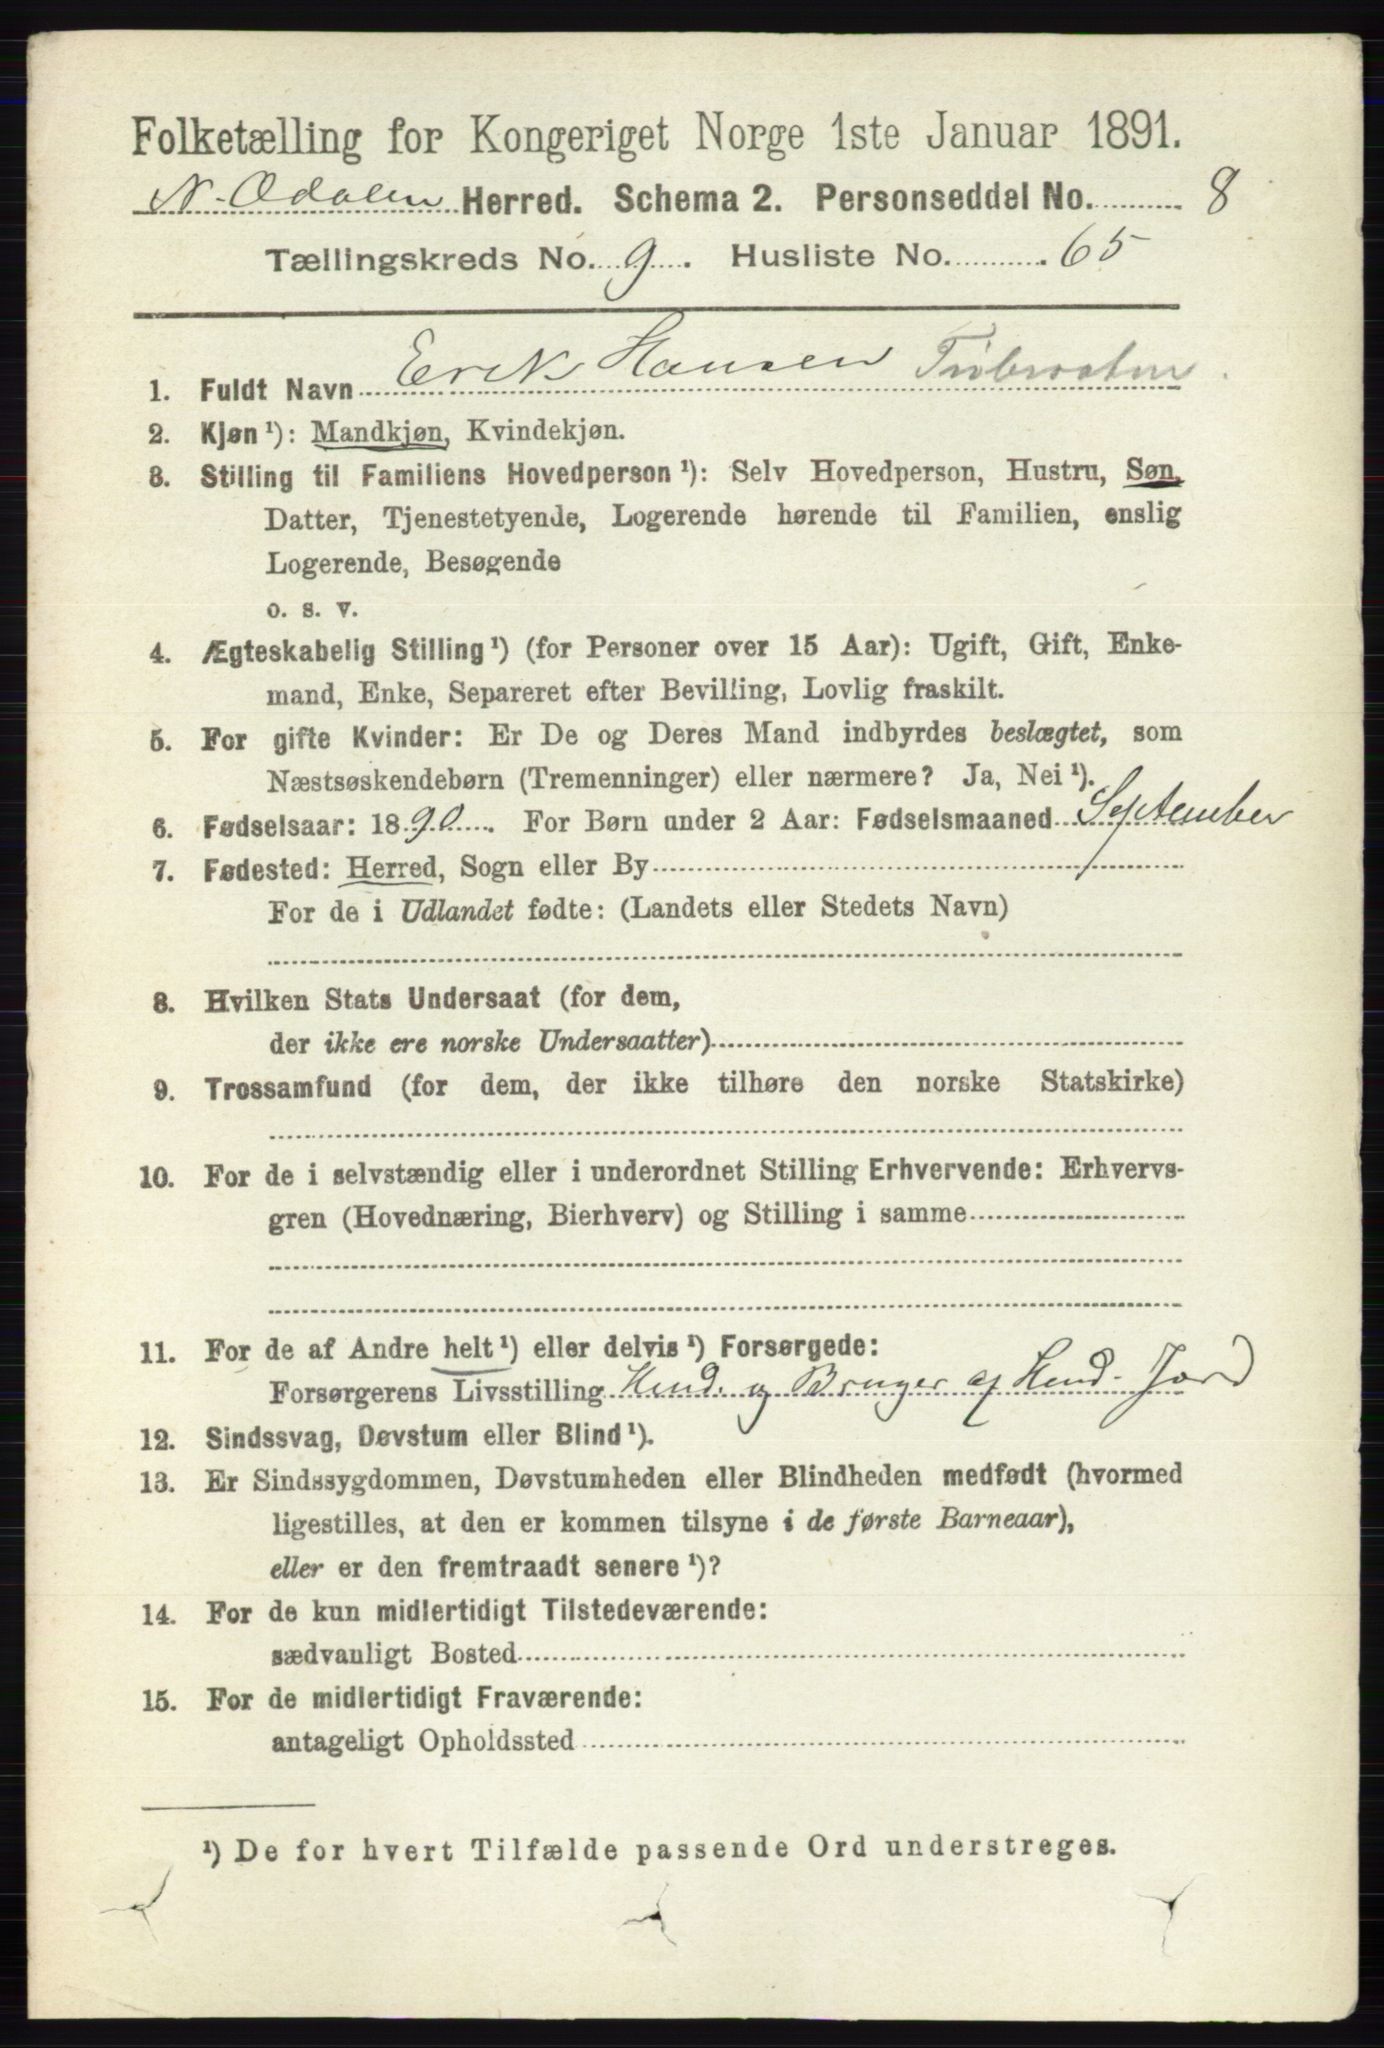 Folketælling for Kongeriget Norge 1ste Januar 1891.
N. Odalen Herred. Schema 2. Personseddel No. 8
Tællingskreds No. 9. Husliste No. 65
1. Fuldt Navn Erik Hansen
2. Kjøn ¹): Mandkjøn, Kvindekjøn.
3. Stilling til Familiens Hovedperson ¹): Selv Hovedperson, Hustru, Søn,
Datter, Tjenestetyende, Logerende hørende til Familien, enslig
Logerende, Besøgende
o. s. v.
4. Ægteskabelig Stilling ¹) (for Personer over 15 Aar): Ugift, Gift, Enke-
mand, Enke, Separeret efter Bevilling, Lovlig fraskilt.
5. For gifte Kvinder: Er De og Deres Mand indbyrdes beslægtet, som
Næstsøskendebørn (Tremenninger) eller nærmere? Ja, Nei ¹).
6. Fødselsaar: 1890. For Børn under 2 Aar: Fødselsmaaned September
7. Fødested: Herred, Sogn eller By
For de i Udlandet fødte: (Landets eller Stedets Navn)
8. Hvilken Stats Undersaat (for dem,
der ikke ere norske Undersaatter)
9. Trossamfund (for dem, der ikke tilhøre den norske Statskirke)
10. For de i selvstændig eller i underordnet Stilling Erhvervende: Erhvervs-
gren (Hovednæring, Bierhverv) og Stilling i samme
11. For de af Andre helt ¹) eller delvis ¹) Forsørgede:
Forsørgerens Livsstilling Husd. og Bruger af Husd. Jord
12. Sindssvag, Døvstum eller Blind ¹).
13. Er Sindssygdommen, Døvstumheden eller Blindheden medfødt (hvormed
ligestilles, at den er kommen tilsyne i de første Barneaar),
eller er den fremtraadt senere ¹)?
14. For de kun midlertidigt Tilstedeværende:
sædvanligt Bosted
15. For de midlertidigt Fraværende:
antageligt Opholdssted
¹) De for hvert Tilfælde passende Ord understreges.